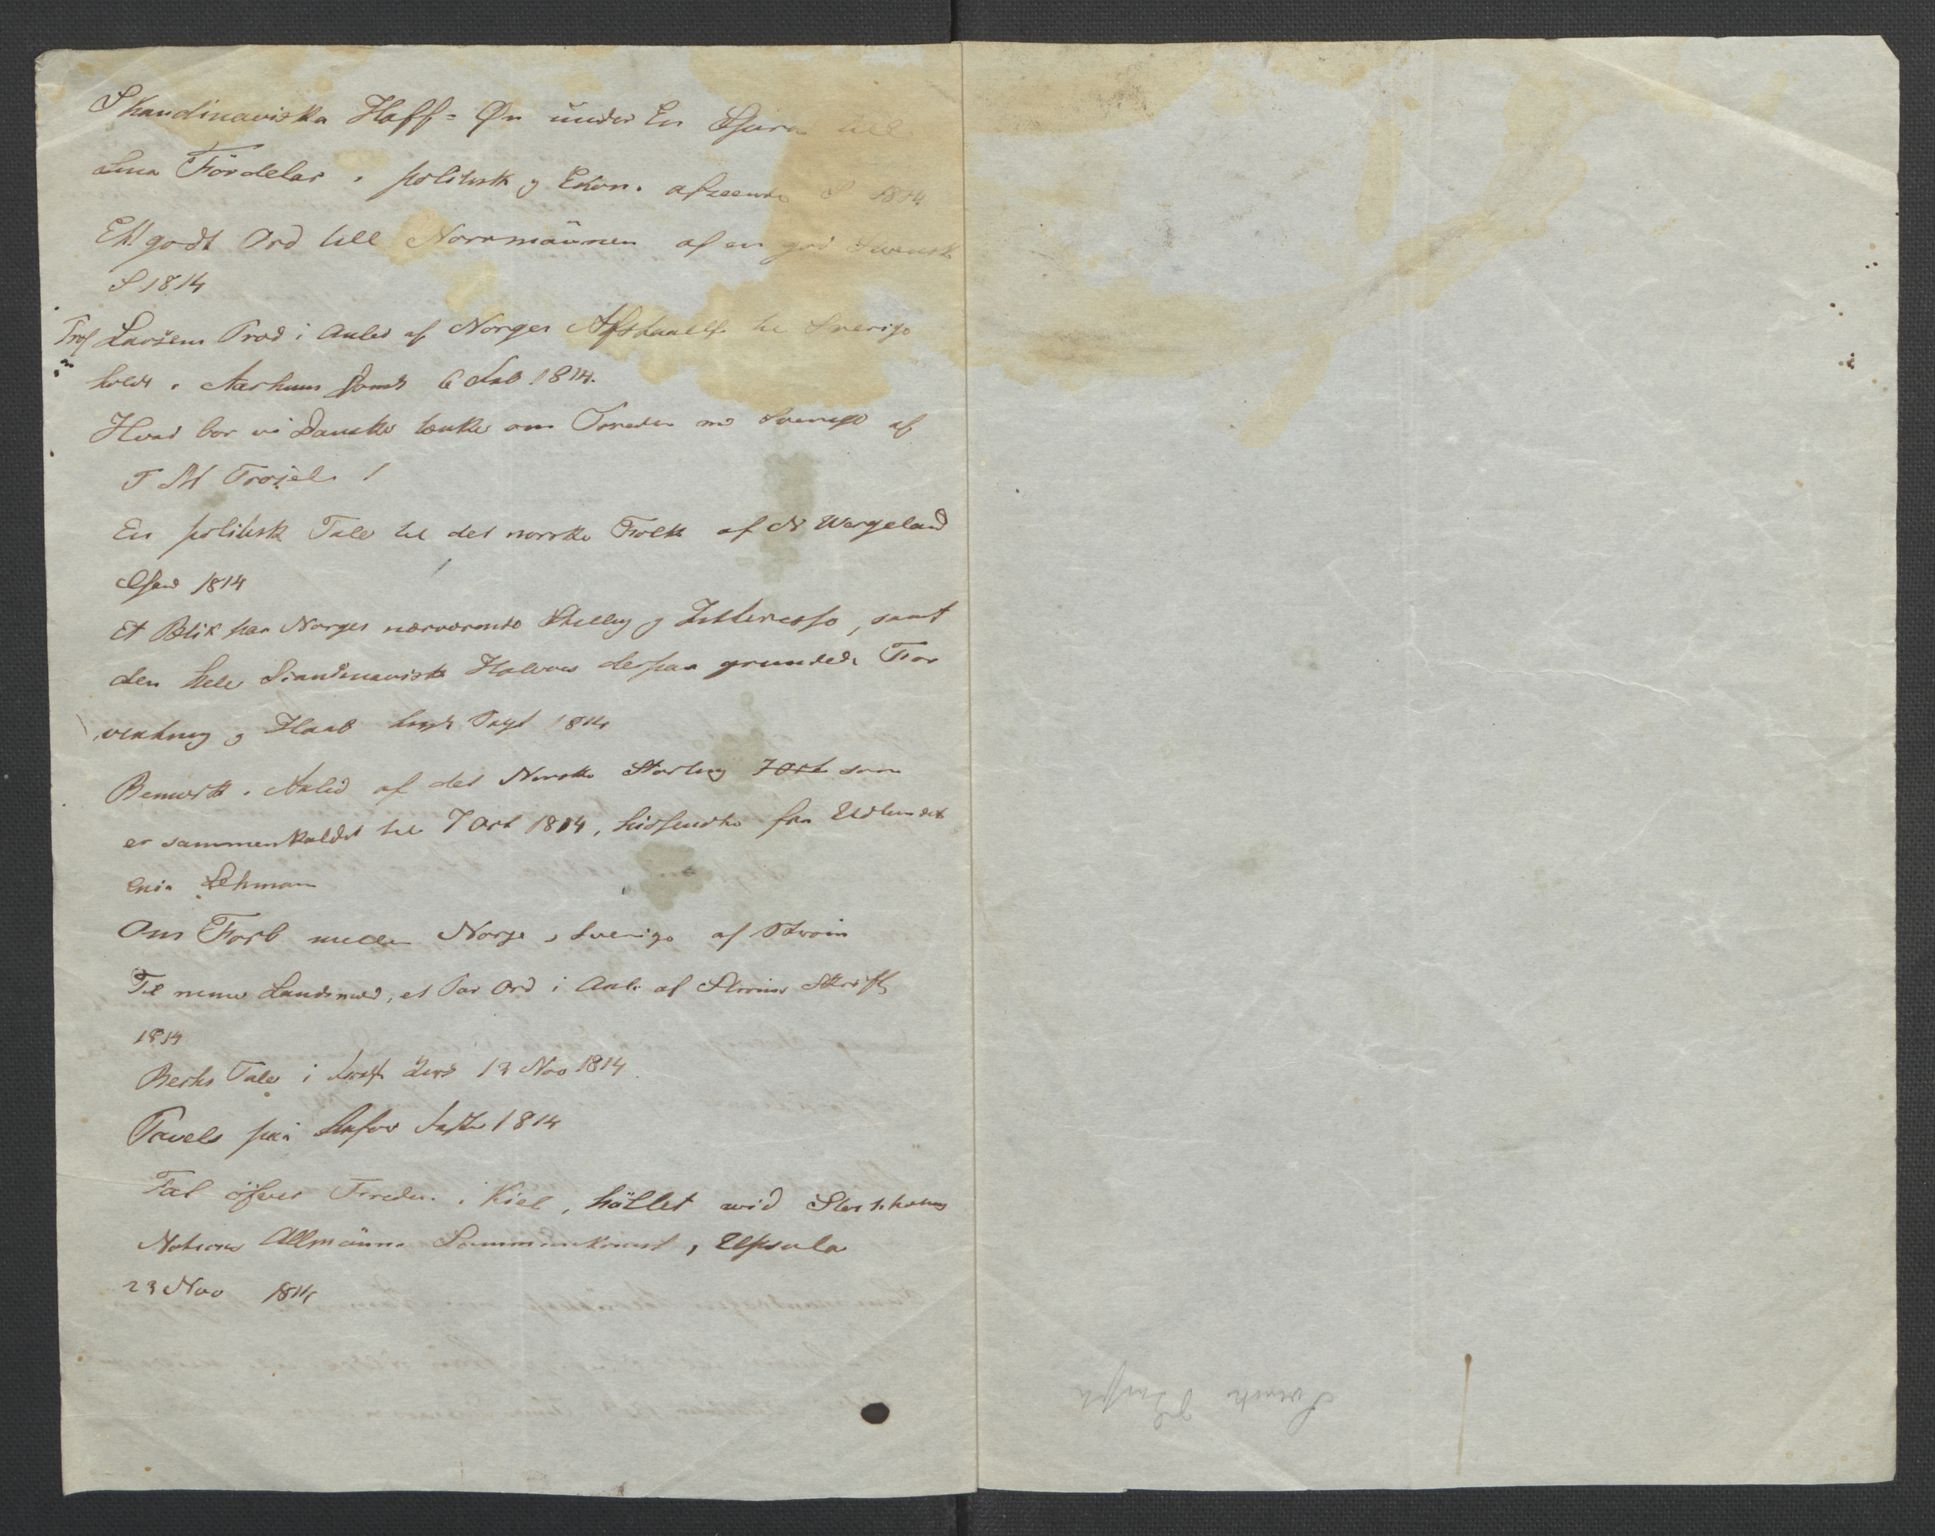 Skandinaviska Haff=Øn under En Styrelse till
sina Fördelar i politisk og Ekon. afseende S 1814
Ett godt Ord till Norrmännen af en god Svensk
S 1814
Prof Larsens Præd i Anled af Norges Afstaaelse til Sverige
holdt i Aarhuus Domk 6 Feb 1814.
Hvad bor vi Danske tænke om Freden md Sverige af
F M Trojel
En politisk Tale til det norske Folk af N Wergeland
Chsand 1814
Et Blik paa Norges nærværende Stilling og Interesse, samt
den hele Scandinaviske Halvøes derpaa grundede For
ventning og Haab Sept 1814
Bemerk. i Anled af det Norske Storting som
er sammenkaldet til 7 Oct 1814, hidsendte fra Udlandet
Lehman
Om Forb mellem Norge og Sverige af Strøm
Til mine Landsmænd, et Par Ord i Anl. af Strøms Skrift
1814
Bechs Tale i 13 Nov 1814
Pavels paa 1814
Tal öfver Freden i Kiel, hållet wid Stockholms
Nations Allmänna Sammankomst i Upsala
23 Nov 1814
Svenske